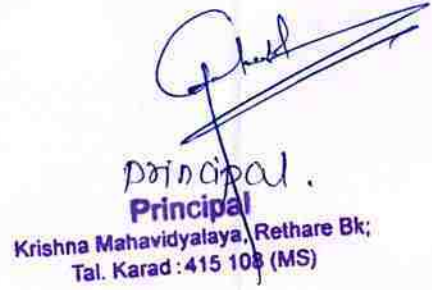 principal.
Principal
Krishna Mahavidyalaya, Rethare Bk;
Tal. Karad : 415 108 (MS)